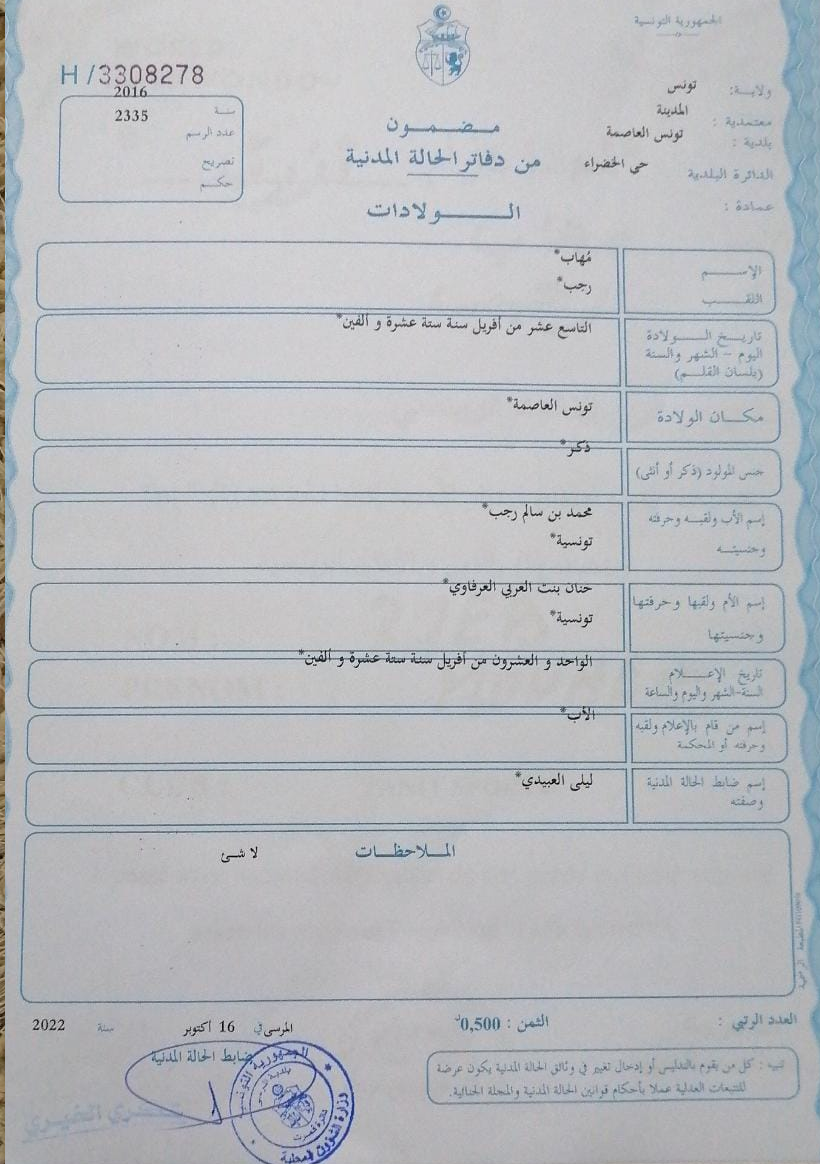 الجمهورية التونسية
H /3308278
ولاية: تونس
معتمدية : المدينة
بلدية : تونس العاصمة
الدائرة البلدية حي الخضراء
عمادة :
سنة 2016
عدد الرسم 2335
تصريح
حكم
مضمون
من دفاتر الحالة المدنية
الولادات
الإسم مُهاب*
اللقب رجب*
تاريخ الولادة التاسع عشر من أفريل سنة ستة عشرة و ألفين*
اليوم - الشهر والسنة
(بلسان القلم)
مكان الولادة تونس العاصمة*
جنس المولود (ذكر أو أنثى) ذكر*
إسم الأب ولقبه وحرفته محمد بن سالم رجب*
وجنسيته تونسية*
إسم الأم ولقبها وحرفتها حنان بنت العربي العرفاوي*
وجنسيتها تونسية*
تاريخ الإعلام الواحد و العشرون من أفريل سنة ستة عشرة و ألفين*
السنة-الشهر واليوم والساعة
إسم من قام بالإعلام ولقبه الأب*
وحرفته أو المحكمة
إسم ضابط الحالة المدنية ليلى العبيدي*
وصفته
الملاحظات
لا شئ
العدد الرتبي :
الثمن : 0,500د
المرسى في 16 أكتوبر سنة 2022
ضابط الحالة المدنية
تنبيه : كل من يقوم بالتدليس أو إدخال تغيير في وثائق الحالة المدنية يكون عرضة
للتتبعات العدلية عملا بأحكام قوانين الحالة المدنية والمجلة الجنائية.
الجمهورية التونسية
وزارة الشؤون المحلية